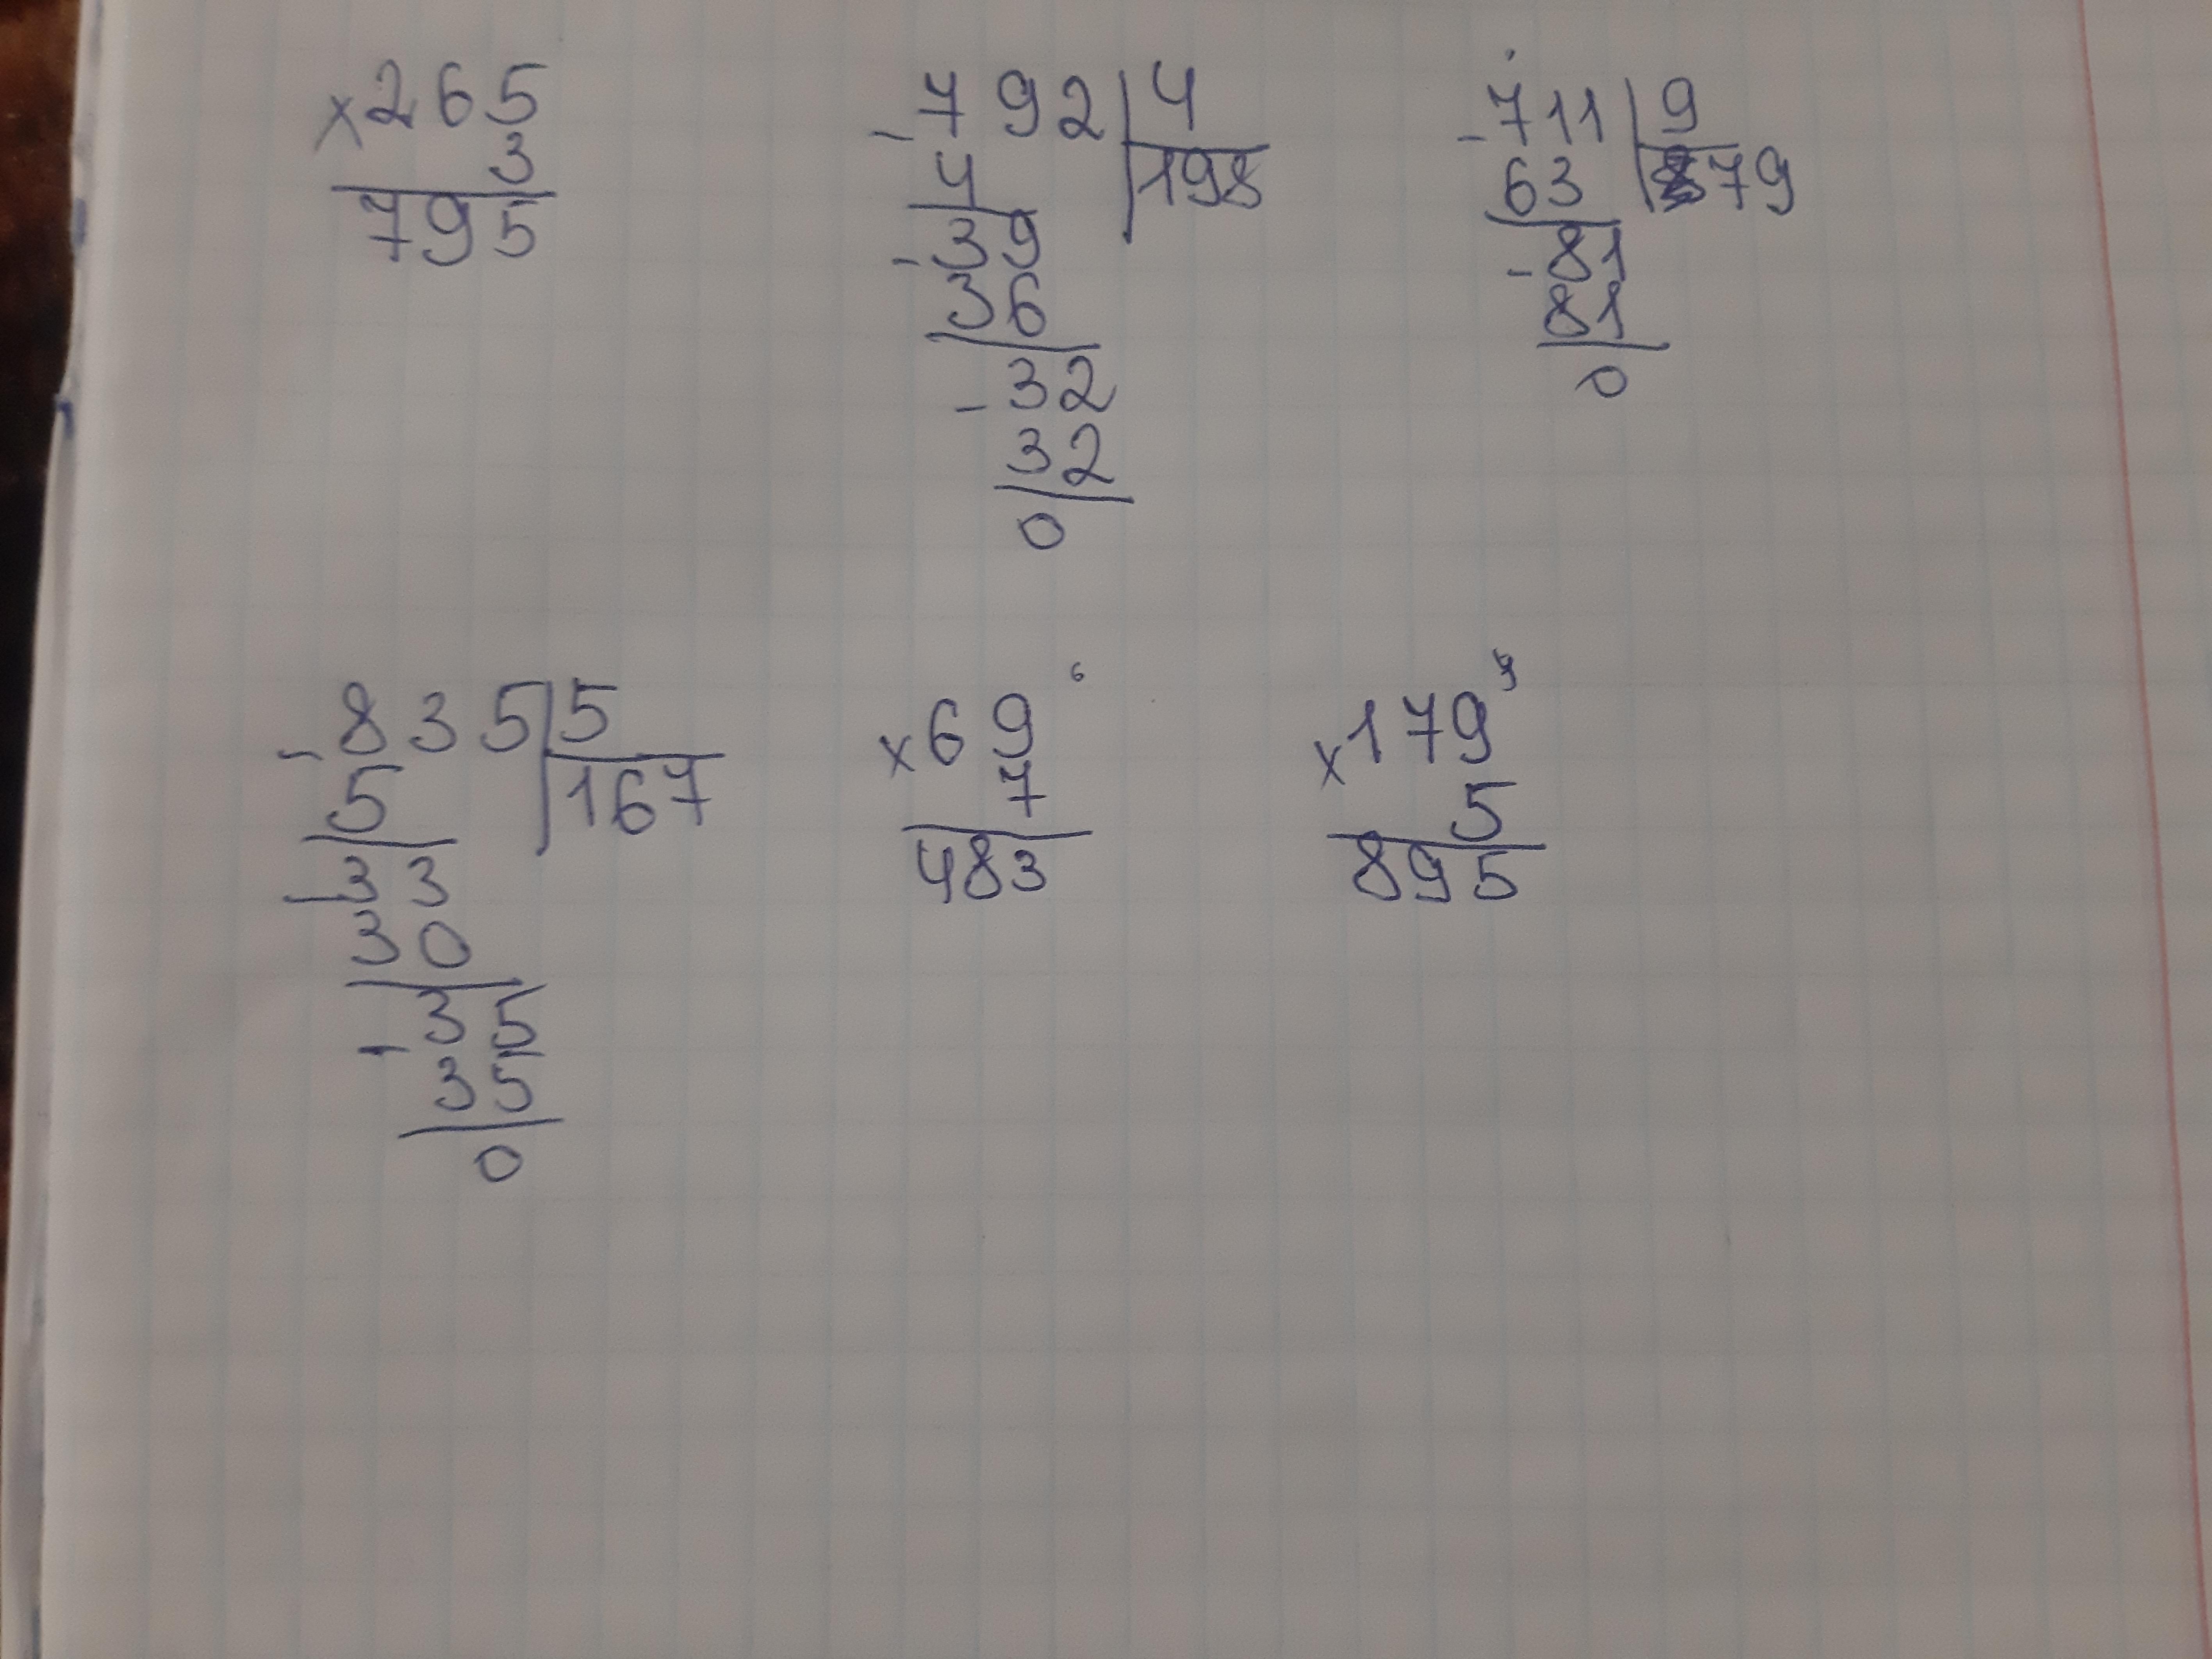 × 265
3
795
- 792 | 4
4 | 198
- 39
36
- 32
32
0
- 711 | 9
63 | 79
- 81
81
0
- 835 | 5
5 | 167
- 33
30
- 35
35
0
6
× 69
7
483
× 179
5
895